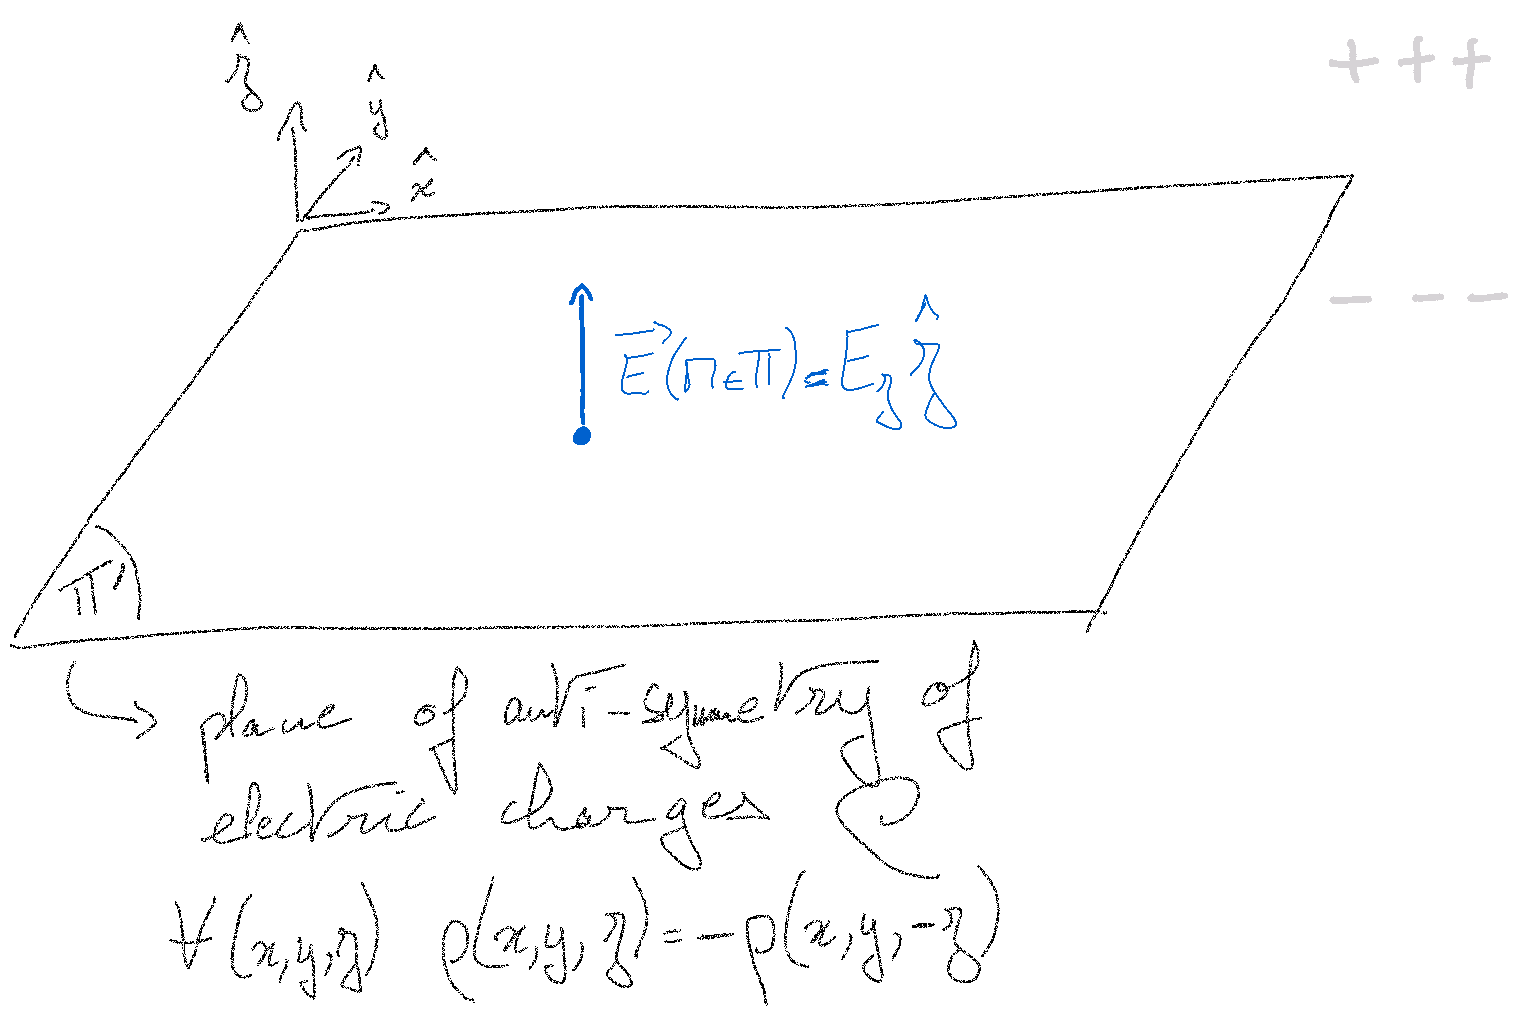 + + +
ẑ
ŷ
x̂
- - -
E⃗(M∈Π)=E_z ẑ
Π'
↳ plane of anti-symmetry of
electric charges
∀(x,y,z) ρ(x,y,z)=-ρ(x,y,-z)